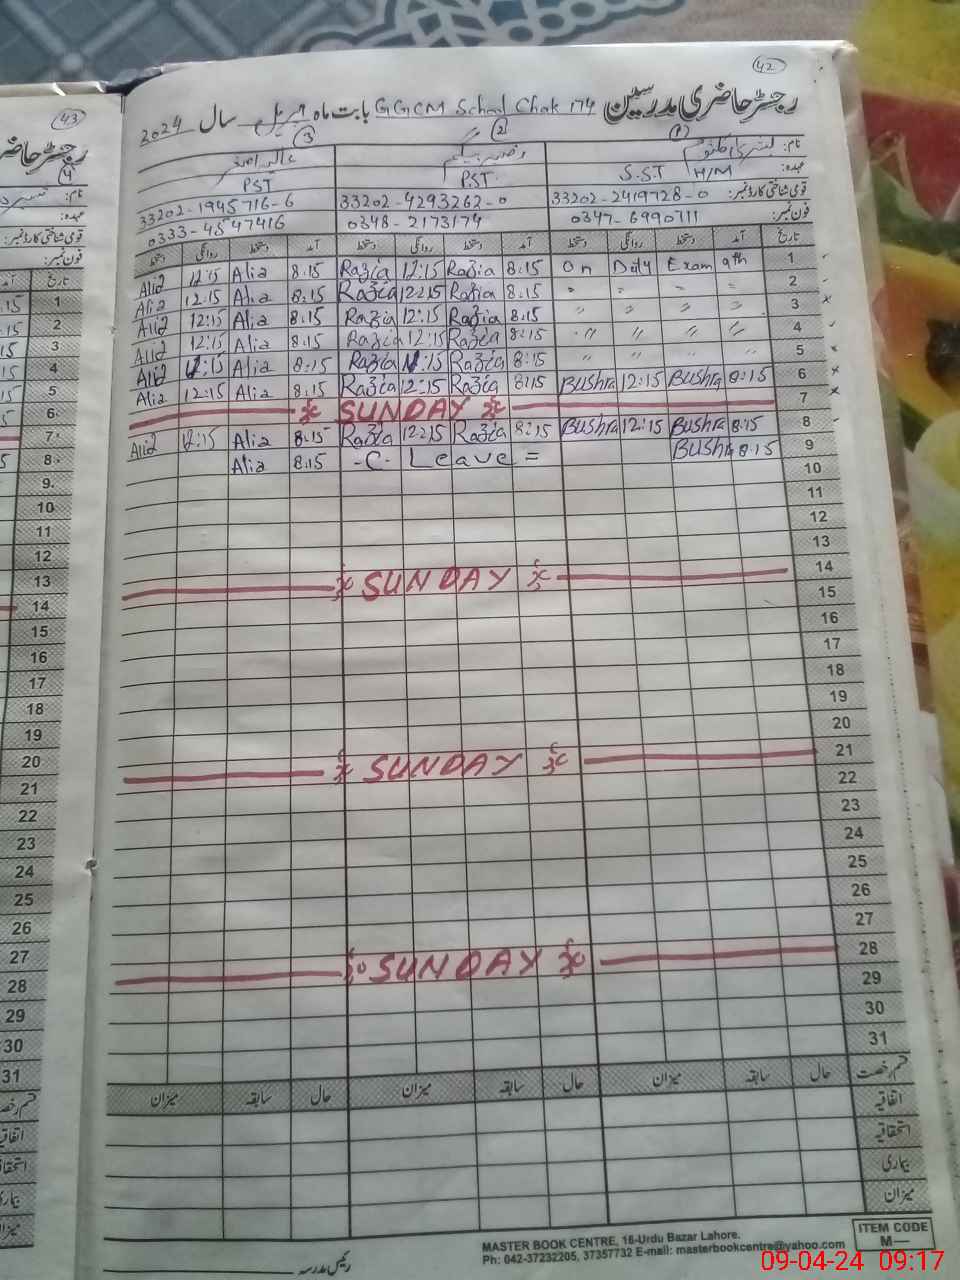 42
رجسٹر حاضری مدرسین GGCM School Chak 174 بابت ماہ اپریل سال 2024
نام: بشریٰ کلثوم 1 2 3
عہدہ: S.S.T H/M PST. PST
قومی شناختی کارڈ نمبر: 33202-2419728-0 33202-4293262-0 33202-1945716-6
فون نمبر: 0347-6990711 0348-2173174 0333-4547416
تاریخ آمد دستخط روانگی دستخط آمد دستخط روانگی دستخط آمد دستخط روانگی دستخط
Alia 12:15 Alia 8.15 Razia 12:15 Razia 8.15 On Duty Exam 9th 1
Alia 12.15 Alia 8.15 Razia 12:15 Razia 8.15 " " " " 2
Alia 12:15 Alia 8.15 Razia 12:15 Razia 8.15 " " " " 3
Alia 12:15 Alia 8.15 Razia 12:15 Razia 8:15 " " " " 4
Alia 12:15 Alia 8:15 Razia 12:15 Razia 8:15 " " " " 5
Alia 12:15 Alia 8.15 Razia 12:15 Razia 8:15 Bushra 12:15 Bushra 8:15 6
SUNDAY 7
Alia 12:15 Alia 8.15 Razia 12:15 Razia 8:15 Bushra 12:15 Bushra 8.15 8
Alia 8.15 -C- Leave = Bushra 8.15 9
10
11
12
13
SUNDAY 14
15
16
17
18
19
20
SUNDAY 21
22
23
24
25
26
27
SUNDAY 28
29
30
31
قسم رخصت حال سابقہ میزان حال سابقہ میزان حال سابقہ میزان
اتفاقیہ
استحقاقیہ
بیماری
میزان
رئیس مدرسہ
MASTER BOOK CENTRE, 16-Urdu Bazar Lahore.
Ph: 042-37232205, 37357732 E-mail: masterbookcentre@yahoo.com
ITEM CODE
M—
43
رجسٹر حاضری
4
نام:
عہدہ:
قومی شناختی کارڈ نمبر:
فون نمبر:
تاریخ
1
2
3
4
5
6
7
8
9
10
11
12
13
14
15
16
17
18
19
20
21
22
23
24
25
26
27
28
29
30
31
قسم رخصت
اتفاقیہ
استحقاقیہ
بیماری
میزان
09-04-24 09:17